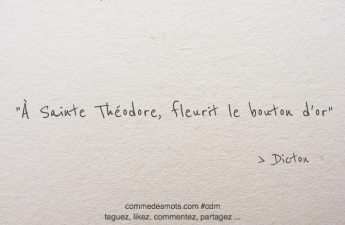 "À Sainte Théodore, fleurit le bouton d'or"
> Dicton
commedesmots.com #cdm
taguez, likez, commentez, partagez ...